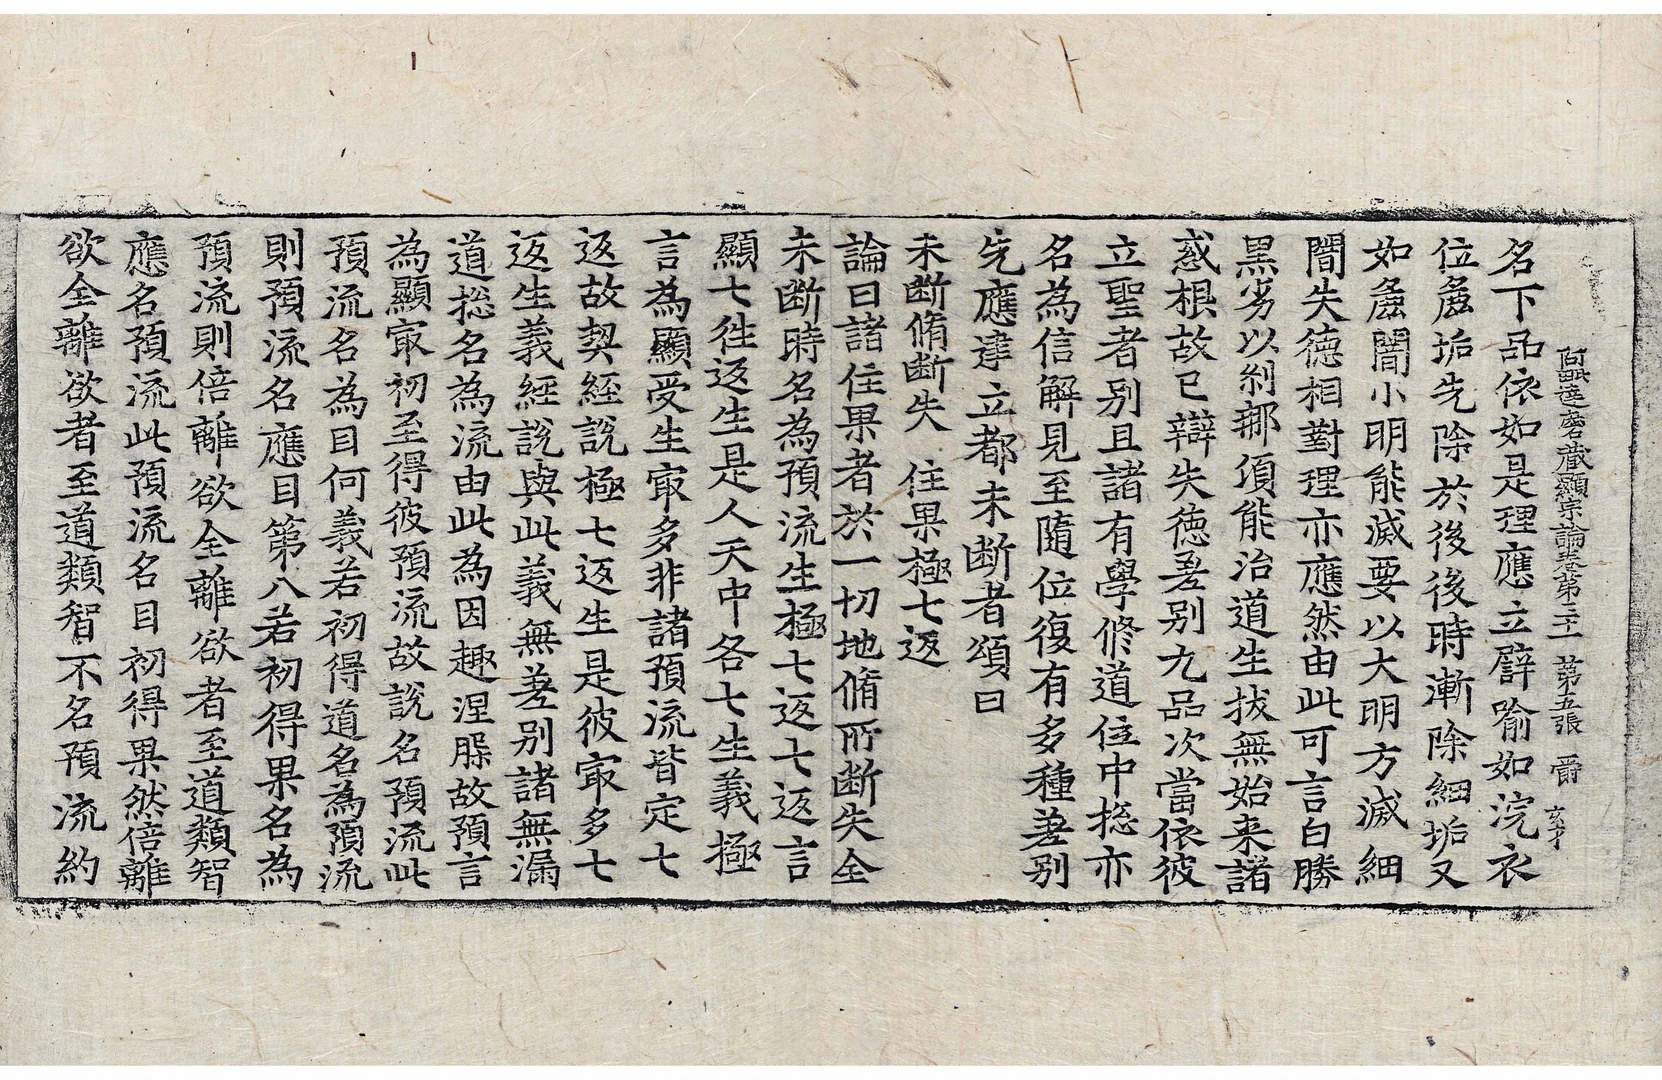 阿毗達磨藏顯宗論卷第三十一 第五張 爵 玄才
名下品依如是理應立譬喻如浣衣
位麁垢先除於後後時漸除細垢又
如麁闇小明能滅要以大明方滅細
闇失德相對理亦應然由此可言白勝
黑劣以剎那項能治道生拔無始来諸
惑根故已辯失德差别九品次當依彼
立聖者别且諸有學修道位中捴亦
名為信解見至隨位復有多種差别
先應建立都未断者頌曰
未断脩断失 住果極七返
論曰諸住果者於一切地脩所断失全
未断時名為預流生極七返七返言
顯七徃返生是人天中各七生義極
言為顯受生㝡多非諸預流皆定七
返故契經說極七返生是彼㝡多七
返生義經說與此義無差别諸無漏
道捴名為流由此為因趣涅槃故預言
為顯㝡初至得彼預流故說名預流此
預流名為目何義若初得道名為預流
則預流名應目第八若初得果名為
預流則倍離欲全離欲者至道類智
應名預流此預流名目初得果然倍離
欲全離欲者至道類智不名預流約